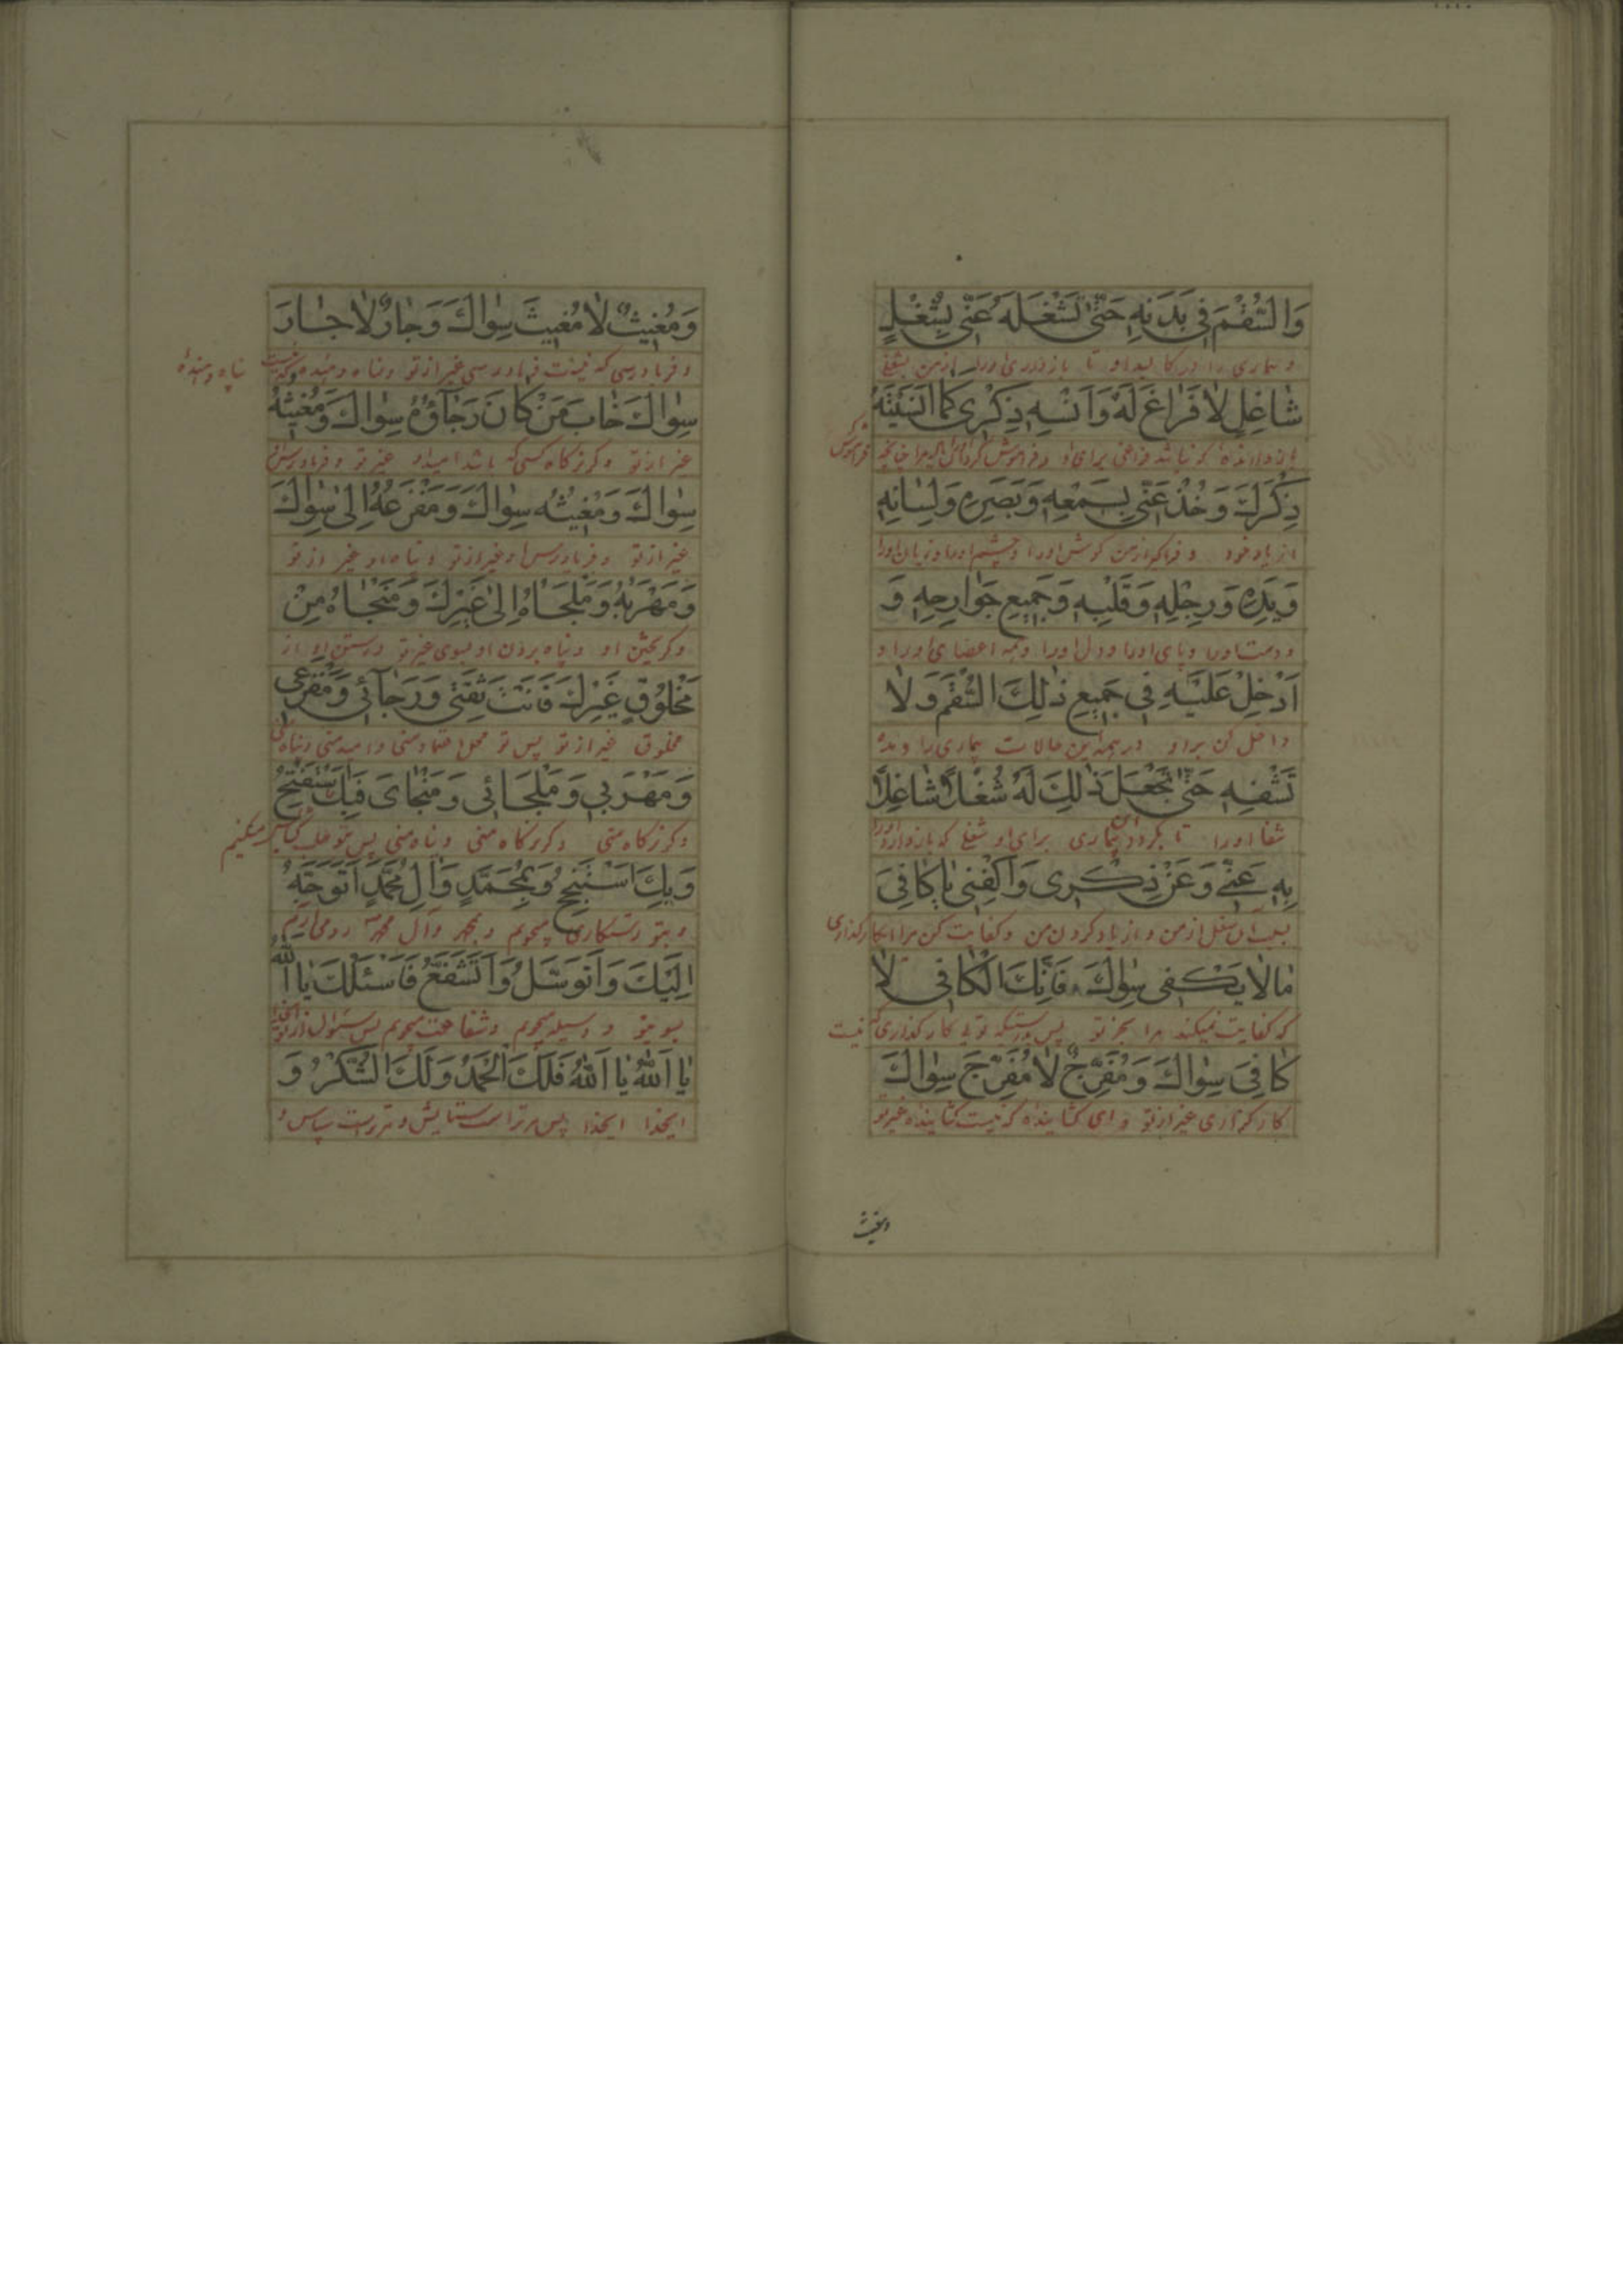 وَالسُّقْمَ فِي بَدَنِهِ حَتّىٰ تَشْغَلَهُ عَنّي بِشُغْلٍ
و بیماری را در کالبد او تا بازداری او را از من بشغل
شاغِلٍ لا فَراغَ لَهُ وَاَنْسِهِ ذِكْري كَما اَنْسَيْتَهُ
که نباشد فراغی برای او و فراموش
ذِكْرَكَ وَخُذْ عَنّي بِسَمْعِهِ وَبَصَرِهِ وَلِسانِهِ
از یاد خود و فراگیر از من گوش او را و چشم او را و زبان او را
وَيَدِهِ وَرِجْلِهِ وَقَلْبِهِ وَجَميعِ جَوارِحِهِ وَ
و دست او را و پای او را و دل او را و همه اعضای او را و
اَدْخِلْ عَلَيْهِ في جَميعِ ذٰلِكَ السُّقْمَ وَلا
داخل کن بر او در همه این حالات بیماری را و مده
تَشْفِهِ حَتّىٰ تَجْعَلَ ذٰلِكَ لَهُ شُغْلاً شاغِلاً
شفا او را تا بگردد این بیماری برای او شغلی که بازدارد او را
بِهِ عَنّي وَعَنْ ذِكْري وَاكْفِني يا كافِيَ
بسبب آن شغل از من و از یاد کردن من و کفایت کن مرا ای کارگذاری
ما لا يَكْفي سِواكَ فَاِنَّكَ الْكافي لا
که کفایت نمیکند مرا بجز تو پس بدرستیکه توئی کارگذاری که نیست
كافِيَ سِواكَ وَمُفَرِّجٌ لا مُفَرِّجَ سِواكَ
کارگزاری غیر از تو و ای گشاینده که نیست گشاینده غیر تو
ومغیث
وَمُغيثٌ لا مُغيثَ سِواكَ وَجارٌ لا جارَ
و فریادرسی که نیست فریادرسی غیر از تو و پناه دهنده که نیست پناه دهندهٔ
سِواكَ خابَ مَنْ كانَ رَجاؤُهُ سِواكَ وَمُغيثُهُ
غیر از تو کسی که باشد امید او غیر تو و فریادرس او
سِواكَ وَمُغيثُهُ سِواكَ وَمَفْزَعُهُ اِلىٰ سِواكَ
غیر از تو و فریادرس او غیر از تو و پناه او غیر از تو
وَمَهْرَبُهُ وَمَلْجَاهُ اِلىٰ غَيْرِكَ وَمَنْجاهُ مِنْ
و گریختن او و پناه بردن او بسوی غیر تو و رستن او از
مَخْلُوقٍ غَيْرِكَ فَاَنْتَ ثِقَتي وَرَجائي وَمَفْزَعي
مخلوق غیر از تو پس تو محل اعتماد منی و امید منی و پناه منی
وَمَهْرَبي وَمَلْجَائي وَمَنْجايَ فَبِكَ اَسْتَفْتِحُ
و گریزگاه منی و گریزگاه منی و پناه منی پس بتو طلب گشایش میکنیم
وَبِكَ اَسْتَنْجِحُ وَبِمُحَمَّدٍ وَآلِ مُحَمَّدٍ اَتَوَجَّهُ
و بتو رستگاری میجویم و بمحمد و آل محمد رو می‌آرم
اِلَيْكَ وَاَتَوَسَّلُ وَاَتَشَفَّعُ فَاَسْئَلُكَ يا اَللهُ
بسوی تو و وسیله میجویم و شفاعت میجویم پس سئوال از تو
يا اَللهُ يا اَللهُ فَلَكَ الْحَمْدُ وَلَكَ الشُّكْرُ وَ
ایخدا ایخدا پس مر تراست ستایش و مر تراست سپاس و